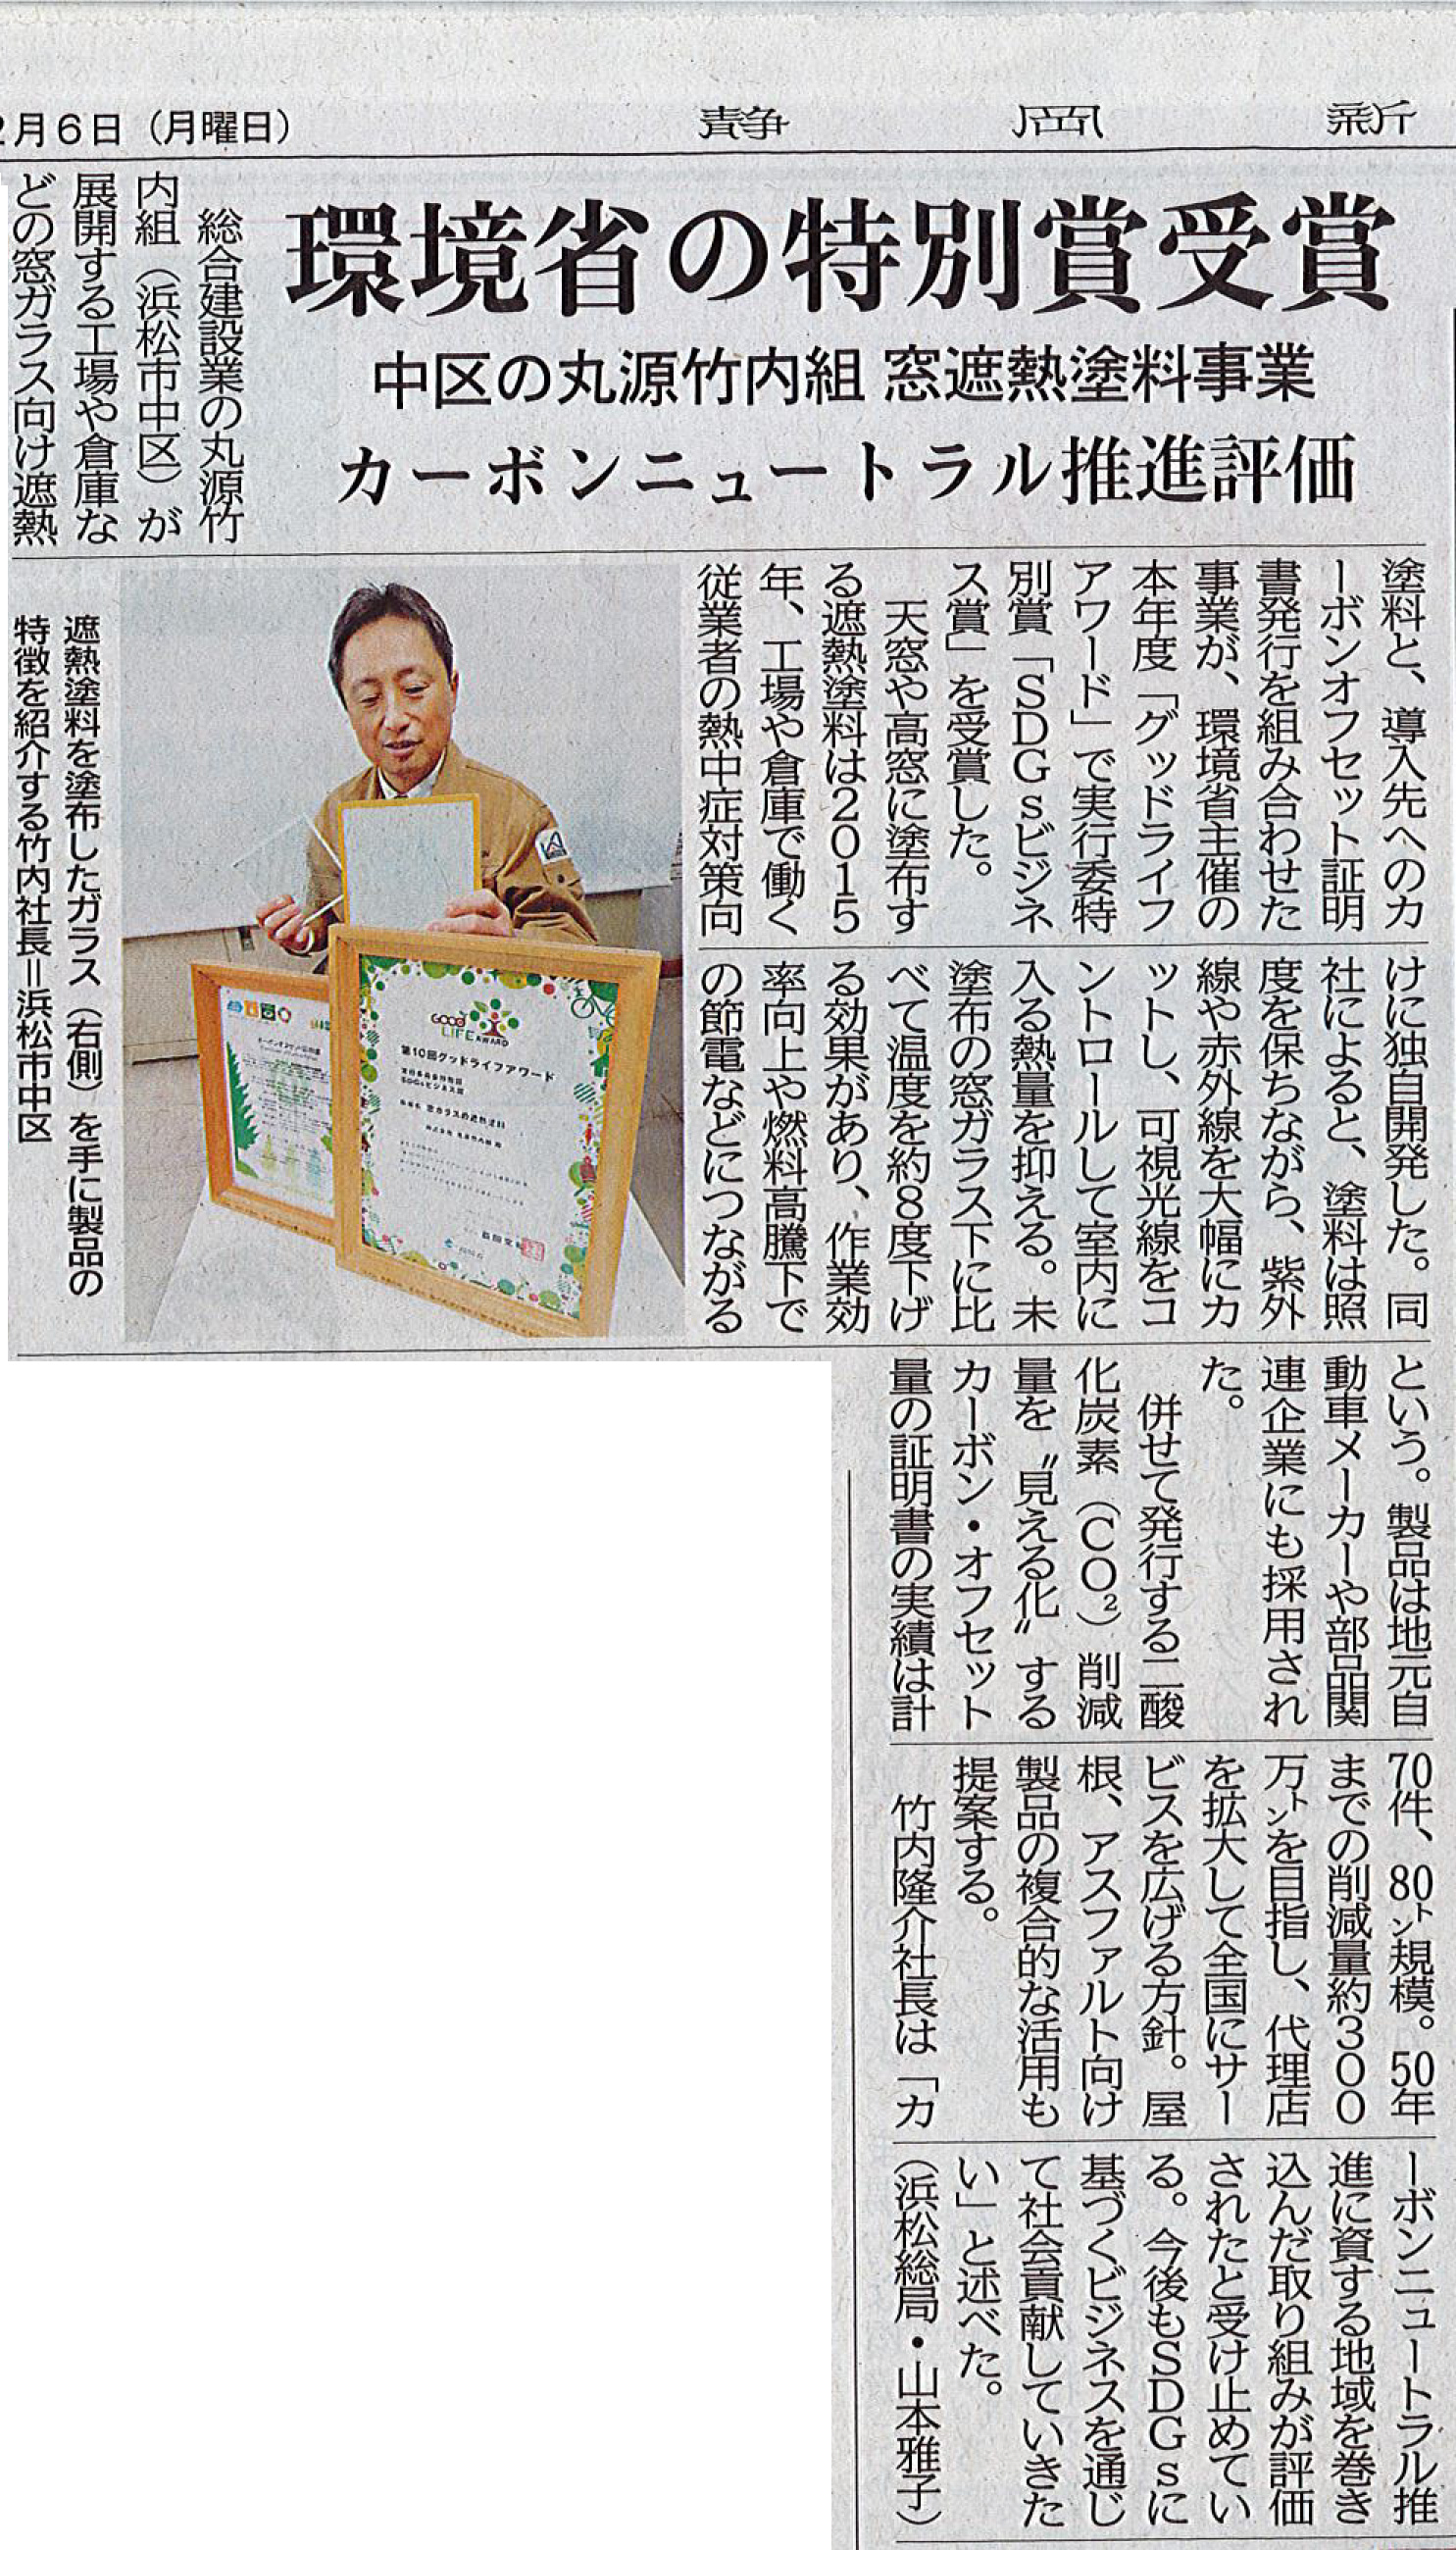 2月6日（月曜日）
静岡新
環境省の特別賞受賞
中区の丸源竹内組 窓遮熱塗料事業
カーボンニュートラル推進評価
総合建設業の丸源竹
内組（浜松市中区）が
展開する工場や倉庫な
どの窓ガラス向け遮熱
塗料と、導入先へのカ
ーボンオフセット証明
書発行を組み合わせた
事業が、環境省主催の
本年度「グッドライフ
アワード」で実行委特
別賞「ＳＤＧｓビジネ
ス賞」を受賞した。
天窓や高窓に塗布す
る遮熱塗料は２０１５
年、工場や倉庫で働く
従業者の熱中症対策向
けに独自開発した。同
社によると、塗料は照
度を保ちながら、紫外
線や赤外線を大幅にカ
ットし、可視光線をコ
ントロールして室内に
入る熱量を抑える。未
塗布の窓ガラス下に比
べて温度を約８度下げ
る効果があり、作業効
率向上や燃料高騰下で
の節電などにつながる
という。製品は地元自
動車メーカーや部品関
連企業にも採用され
た。
併せて発行する二酸
化炭素（ＣＯ₂）削減
量を〝見える化〟する
カーボン・オフセット
量の証明書の実績は計
70件、80㌧規模。50年
までの削減量約３００
万㌧を目指し、代理店
を拡大して全国にサー
ビスを広げる方針。屋
根、アスファルト向け
製品の複合的な活用も
提案する。
竹内隆介社長は「カ
ーボンニュートラル推
進に資する地域を巻き
込んだ取り組みが評価
されたと受け止めてい
る。今後もＳＤＧｓに
基づくビジネスを通じ
て社会貢献していきた
い」と述べた。
（浜松総局・山本雅子）
遮熱塗料を塗布したガラス（右側）を手に製品の
特徴を紹介する竹内社長＝浜松市中区
GOOD
LIFE AWARD
第10回グッドライフアワード
実行委員会特別賞
SDGsビジネス賞
窓ガラスの遮熱塗料